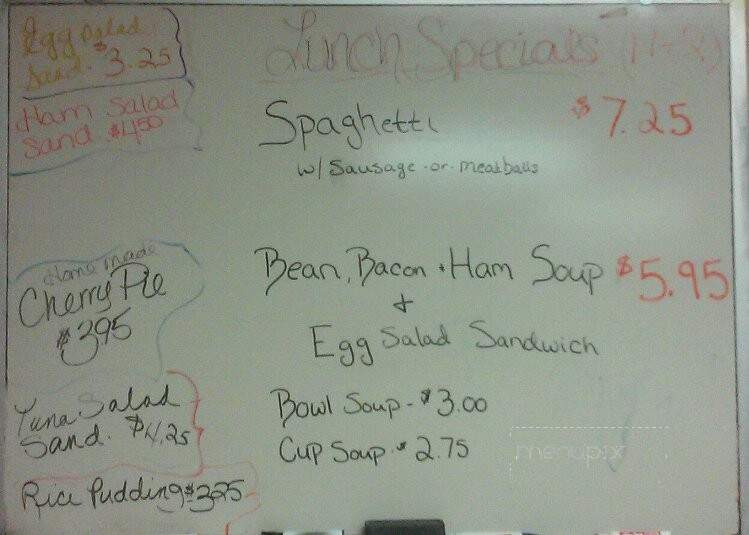 Egg Salad
Sand. $3.25
Ham Salad
Sand. $4.50
Home made
Cherry Pie
$3.95
Tuna Salad
Sand. $4.25
Rice Pudding $3.25
Lunch Specials (11-2)
Spaghetti $7.25
w/ Sausage -or- meatballs
Bean, Bacon + Ham Soup $5.95
+
Egg Salad Sandwich
Bowl Soup - $3.00
Cup Soup - $2.75
menupix